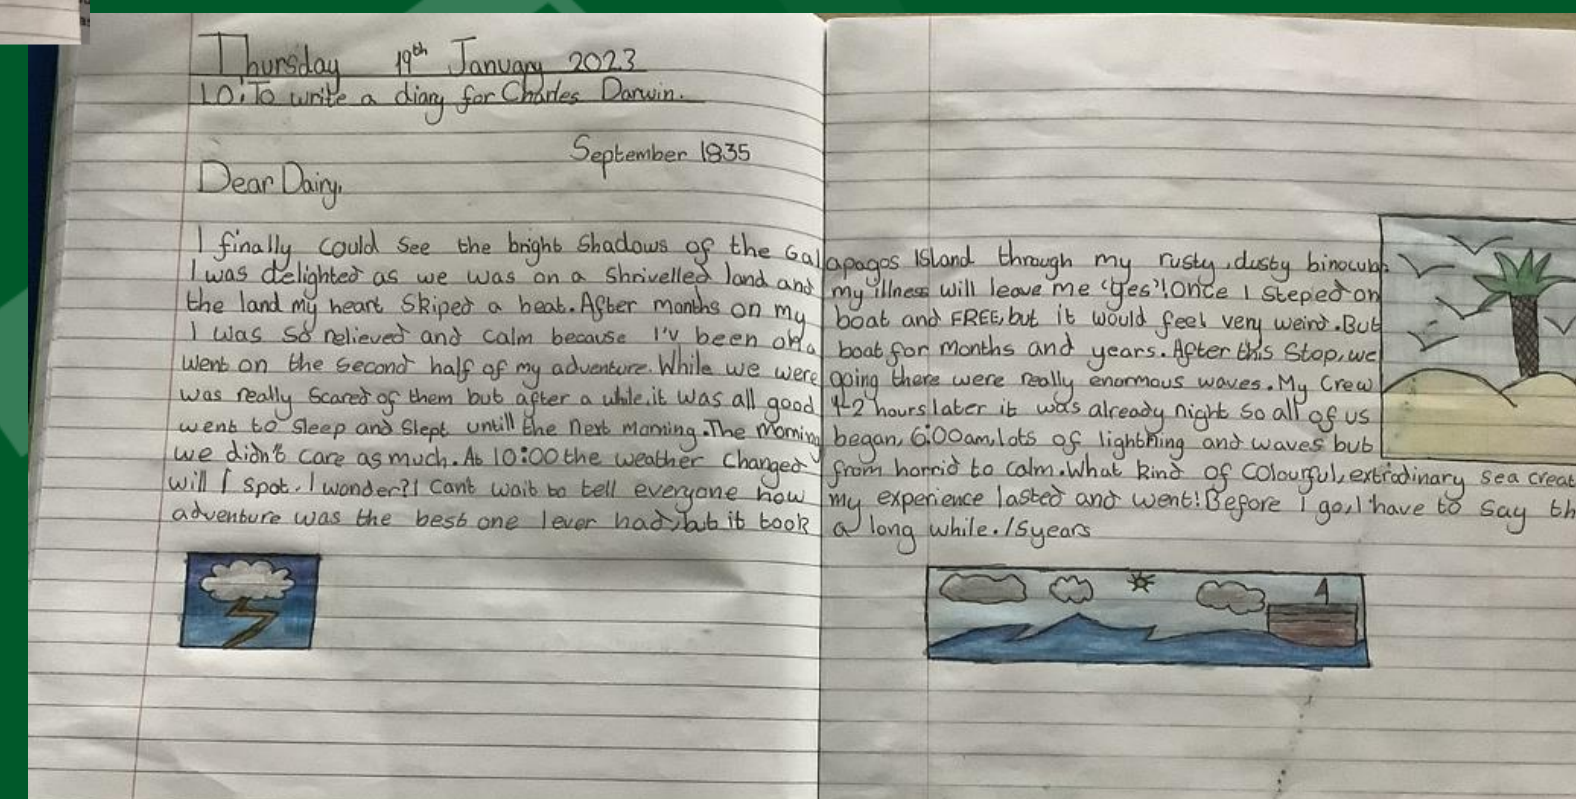 Thursday 19th January 2023
LO: To write a diary for Charles Darwin.
September 1835
Dear Dairy,
I finally could see the bright shadows of the Galapagos Island through my rusty, dusty
I was delighted as we was on a shrivelled land and my illness will leave me "yes"! Once I steped on
the land my heart skiped a beat. After months on my boat and FREE, but it would feel very weird. But
I was so relieved and calm because I'v been on a boat for months and years. After this stop, we
went on the second half of my adventure. While we were going there were really enormous waves. My crew
was really scared of them but after a while, it was all good 1-2 hours later it was already night so all of us
went to sleep and slept untill the next morning. The morning began, 6:00am, lots of lightning and waves but
we didn't care as much. At 10:00 the weather changed from horrid to calm. What kind of colourful, extrodinary sea
will I spot, I wonder?! I cant wait to tell everyone how my experience lasted and went! Before I go, I have to say
adventure was the best one I ever had, but it took a long while. /5 years